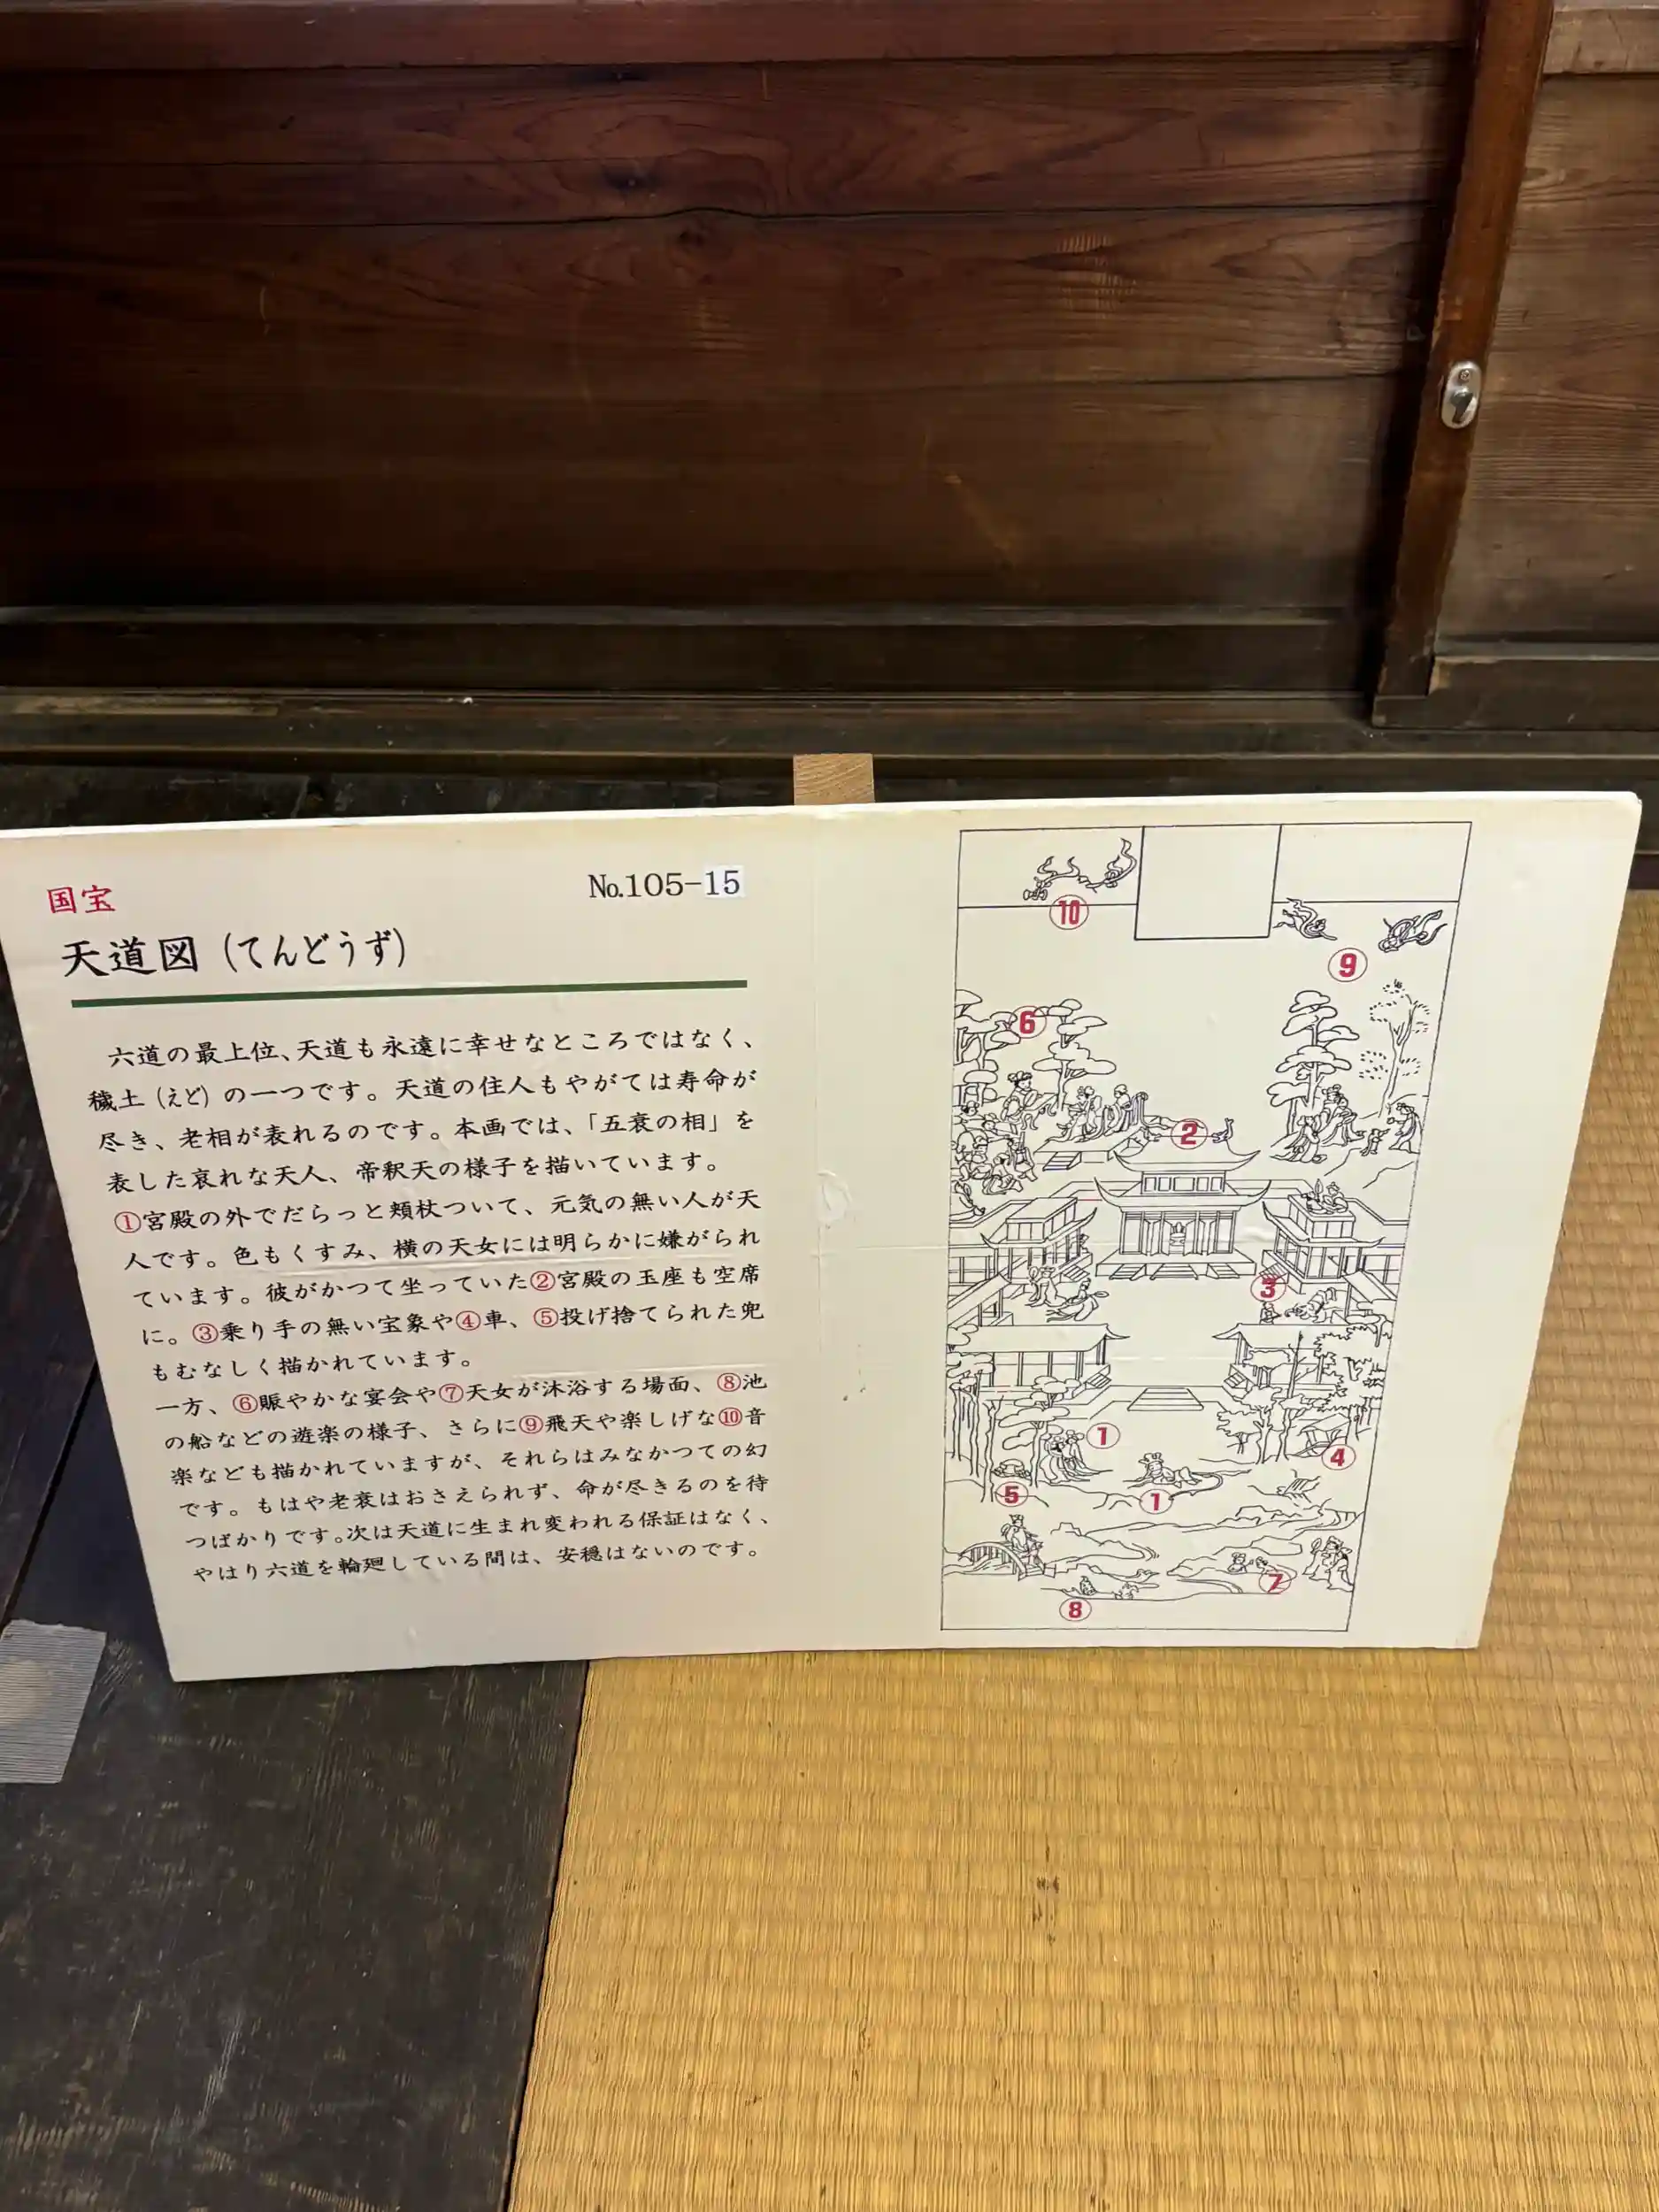 国宝
No.105-15
天道図（てんどうず）
六道の最上位、天道も永遠に幸せなところではなく、
穢土（えど）の一つです。天道の住人もやがては寿命が
尽き、老相が表れるのです。本画では、「五衰の相」を
表した哀れな天人、帝釈天の様子を描いています。
①宮殿の外でだらっと頬杖ついて、元気の無い人が天
人です。色もくすみ、横の天女には明らかに嫌がられ
ています。彼がかつて坐っていた②宮殿の玉座も空席
に。③乗り手の無い宝象や④車、⑤投げ捨てられた兜
もむなしく描かれています。
一方、⑥賑やかな宴会や⑦天女が沐浴する場面、⑧池
の船などの遊楽の様子、さらに⑨飛天や楽しげな⑩音
楽なども描かれていますが、それらはみなかつての幻
です。もはや老衰はおさえられず、命が尽きるのを待
つばかりです。次は天道に生まれ変われる保証はなく、
やはり六道を輪廻している間は、安穏はないのです。
⑩
⑨
⑥
②
③
①
④
⑤
①
⑦
⑧